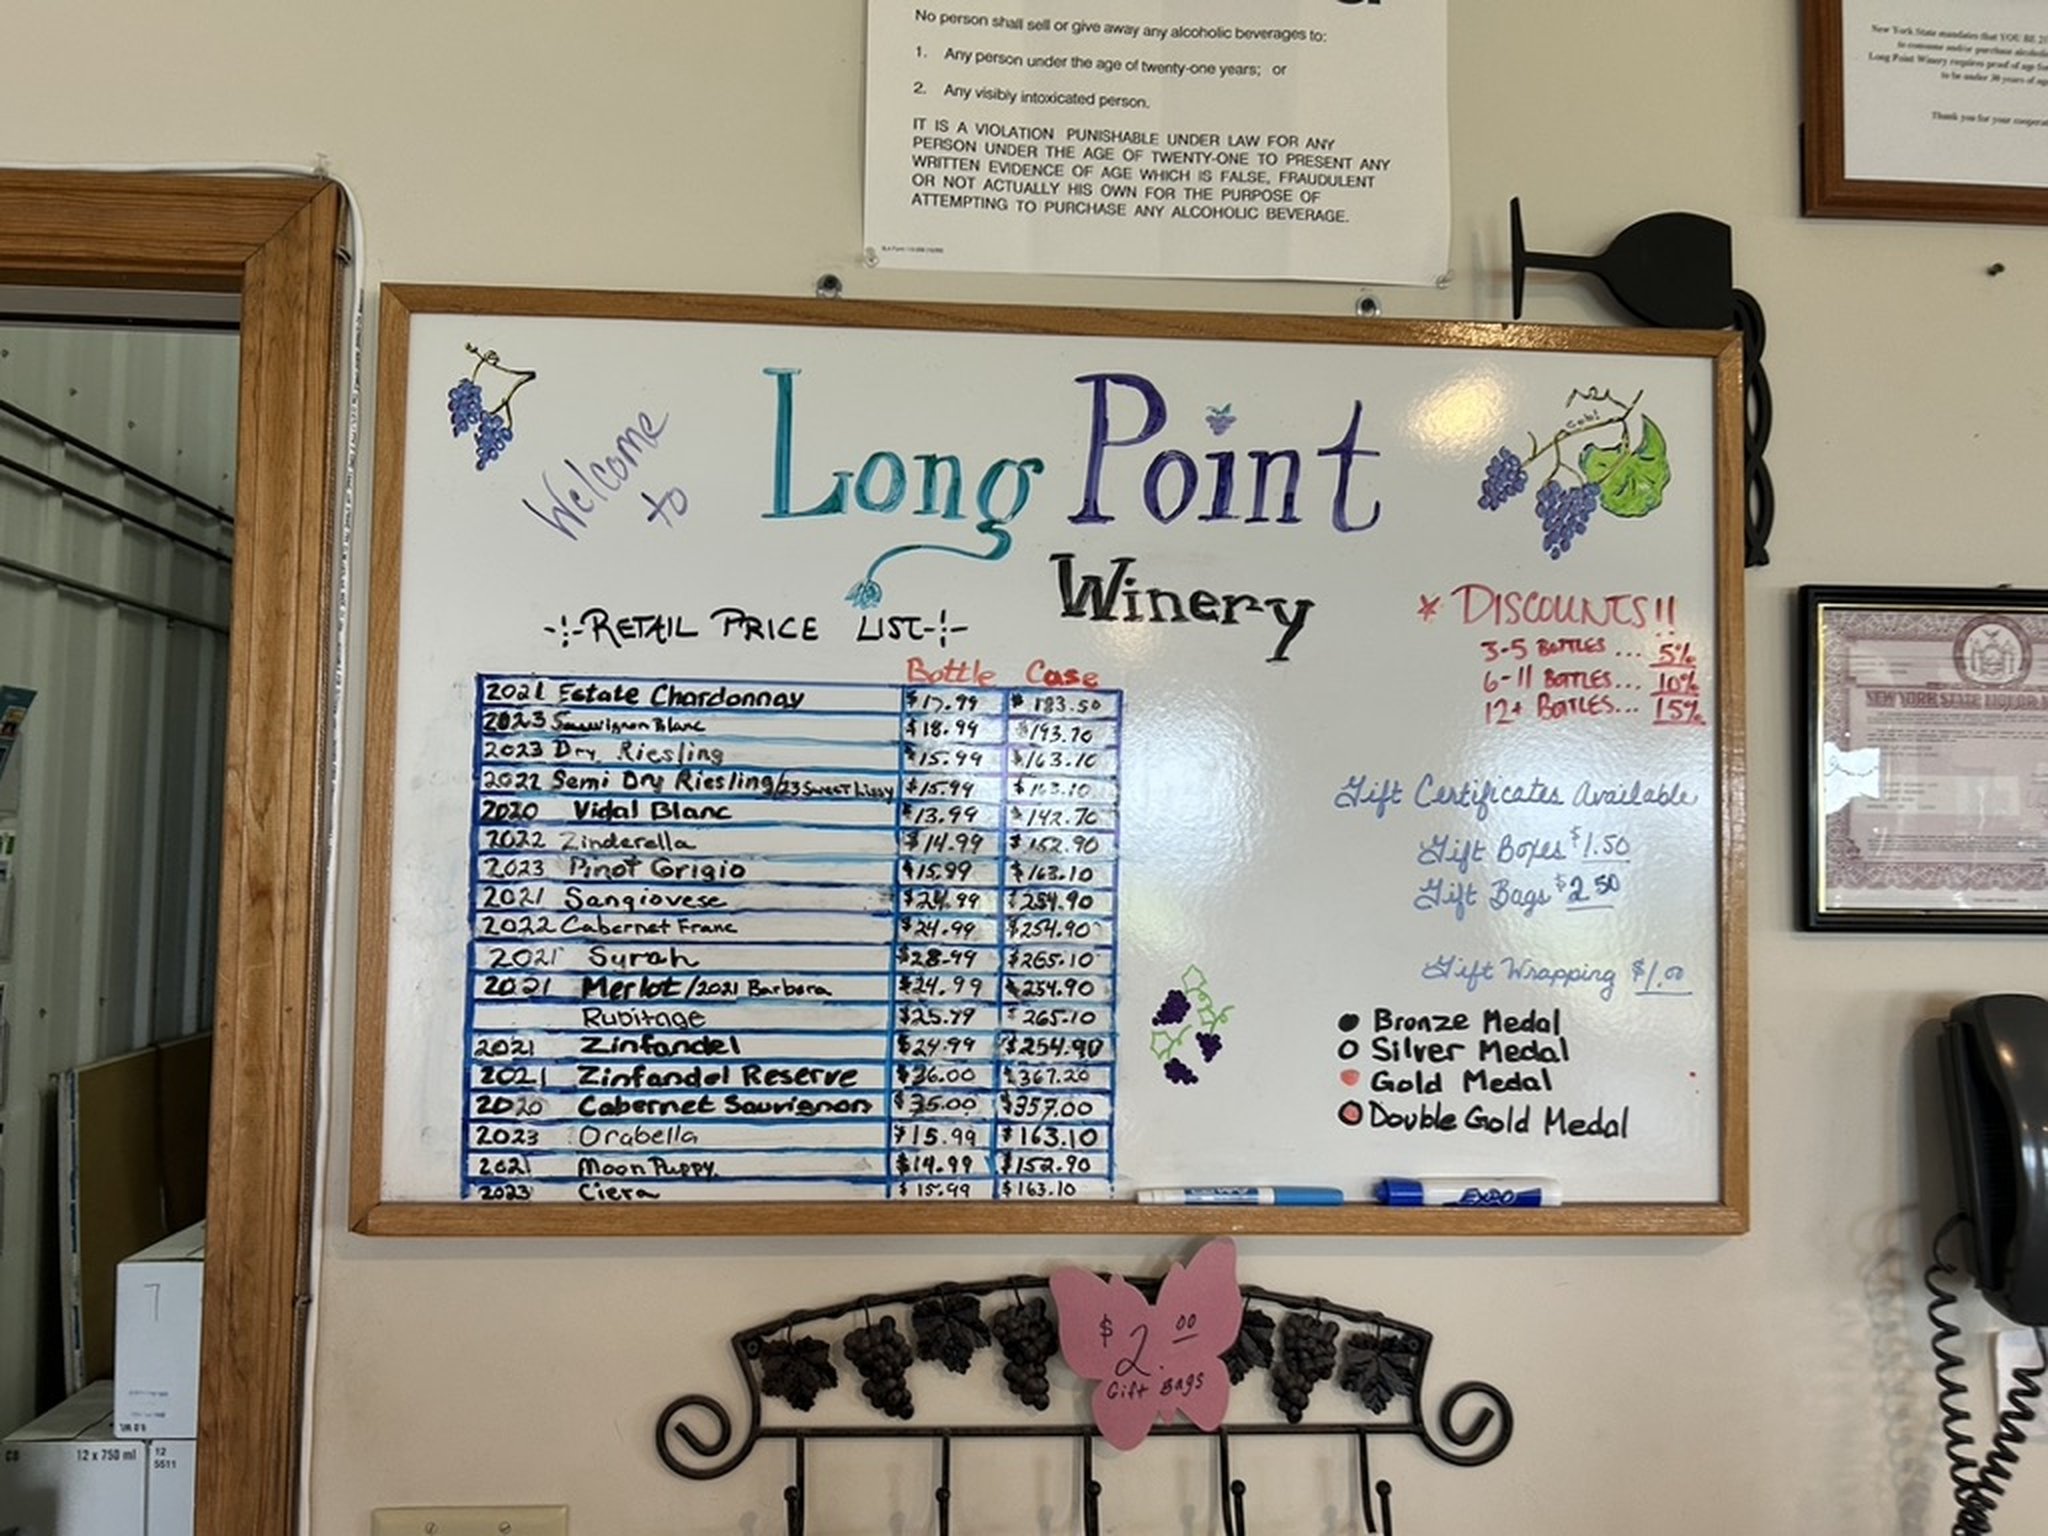 No person shall sell or give away any alcoholic beverages to:
1. Any person under the age of twenty-one years; or
2. Any visibly intoxicated person.
IT IS A VIOLATION PUNISHABLE UNDER LAW FOR ANY
PERSON UNDER THE AGE OF TWENTY-ONE TO PRESENT ANY
WRITTEN EVIDENCE OF AGE WHICH IS FALSE, FRAUDULENT
OR NOT ACTUALLY HIS OWN FOR THE PURPOSE OF
ATTEMPTING TO PURCHASE ANY ALCOHOLIC BEVERAGE.
New York State mandates that YOU BE 21
to consume and/or purchase alcoholic
Long Point Winery requires proof of age for
to be under 30 years of age
Thank you for your cooperat
Welcome
to
Long Point
Winery
RETAIL PRICE LIST
Bottle Case
2021 Estate Chardonnay $17.99 $183.50
2023 Sauvignon Blanc $18.99 $193.70
2023 Dry Riesling $15.99 $163.10
2022 Semi Dry Riesling/23 Sweet Lissy $15.99 $163.10
2020 Vidal Blanc $13.99 $142.70
2022 Zinderella $14.99 $152.90
2023 Pinot Grigio $15.99 $163.10
2021 Sangiovese $24.99 $254.90
2022 Cabernet Franc $24.99 $254.90
2021 Syrah $28.99 $265.10
2021 Merlot/2021 Barbera $24.99 $254.90
Rubitage $25.99 $265.10
2021 Zinfandel $24.99 $254.90
2021 Zinfandel Reserve $36.00 $367.20
2020 Cabernet Sauvignon $35.00 $357.00
2023 Orabella $15.99 $163.10
2021 Moon Puppy $14.99 $152.90
2023 Ciera $15.99 $163.10
* DISCOUNTS!!
3-5 BOTTLES... 5%
6-11 BOTTLES... 10%
12+ BOTTLES... 15%
Gift Certificates Available
Gift Boxes $1.50
Gift Bags $2.50
Gift Wrapping $1.00
Bronze Medal
Silver Medal
Gold Medal
Double Gold Medal
EXPO
NEW YORK STATE LIQUOR
$2.00
Gift Bags
7
12 x 750 ml
12
5511